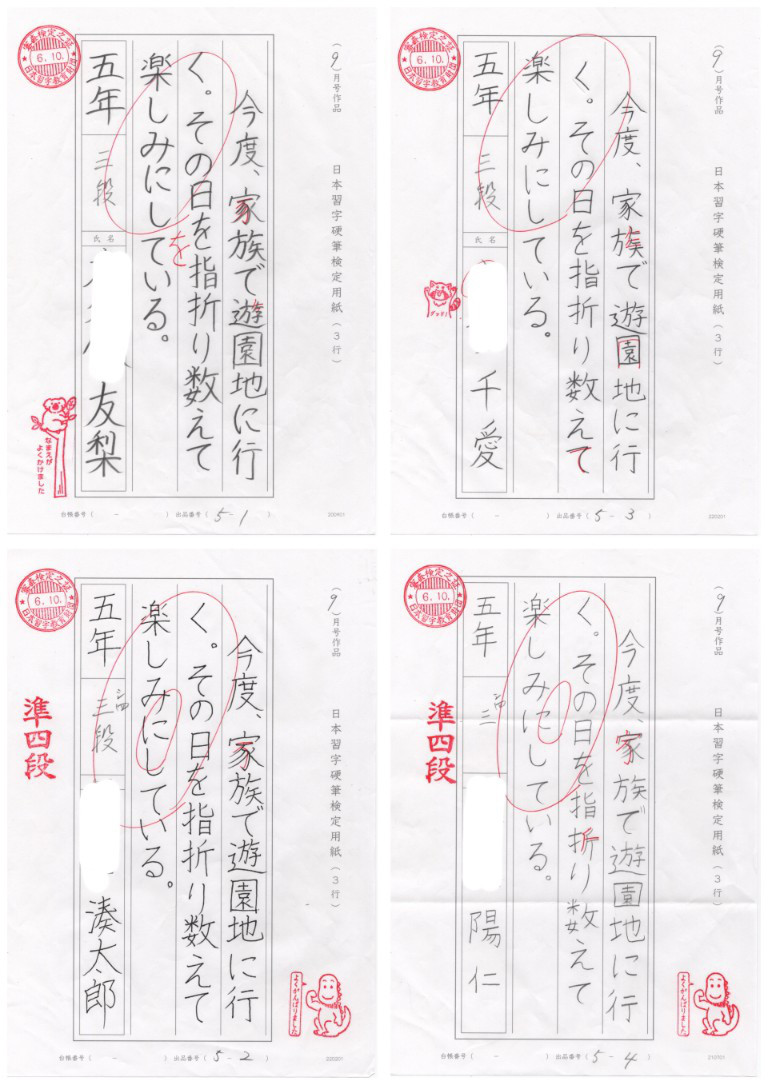 (9)月号作品 日本習字硬筆検定用紙(3行)
今度、家族で遊園地に行
く。その日を指折り数えて
を
楽しみにしている。
五年 三段 氏名 友梨
審査検定之証
6.10.
日本習字教育財団
なまえが
よくかけました
台帳番号( - ) 出品番号( 5-1 )
(9)月号作品 日本習字硬筆検定用紙(3行)
今度、家族で遊園地に行
く。その日を指折り数えて
楽しみにしている。
五年 三段 氏名 千愛
審査検定之証
6.10.
日本習字教育財団
台帳番号( - ) 出品番号( 5-3 )
(9)月号作品 日本習字硬筆検定用紙(3行)
今度、家族で遊園地に行
く。その日を指折り数えて
楽しみにしている。
五年 三段 湊太郎
審査検定之証
6.10.
日本習字教育財団
準四段
よくがんばりました
台帳番号( - ) 出品番号( 5-2 )
(9)月号作品 日本習字硬筆検定用紙(3行)
今度、家族で遊園地に行
く。その日を指折り数えて
楽しみにしている。
五年 三 陽仁
審査検定之証
6.10.
日本習字教育財団
準四段
よくがんばりました
台帳番号( - ) 出品番号( 5-4 )